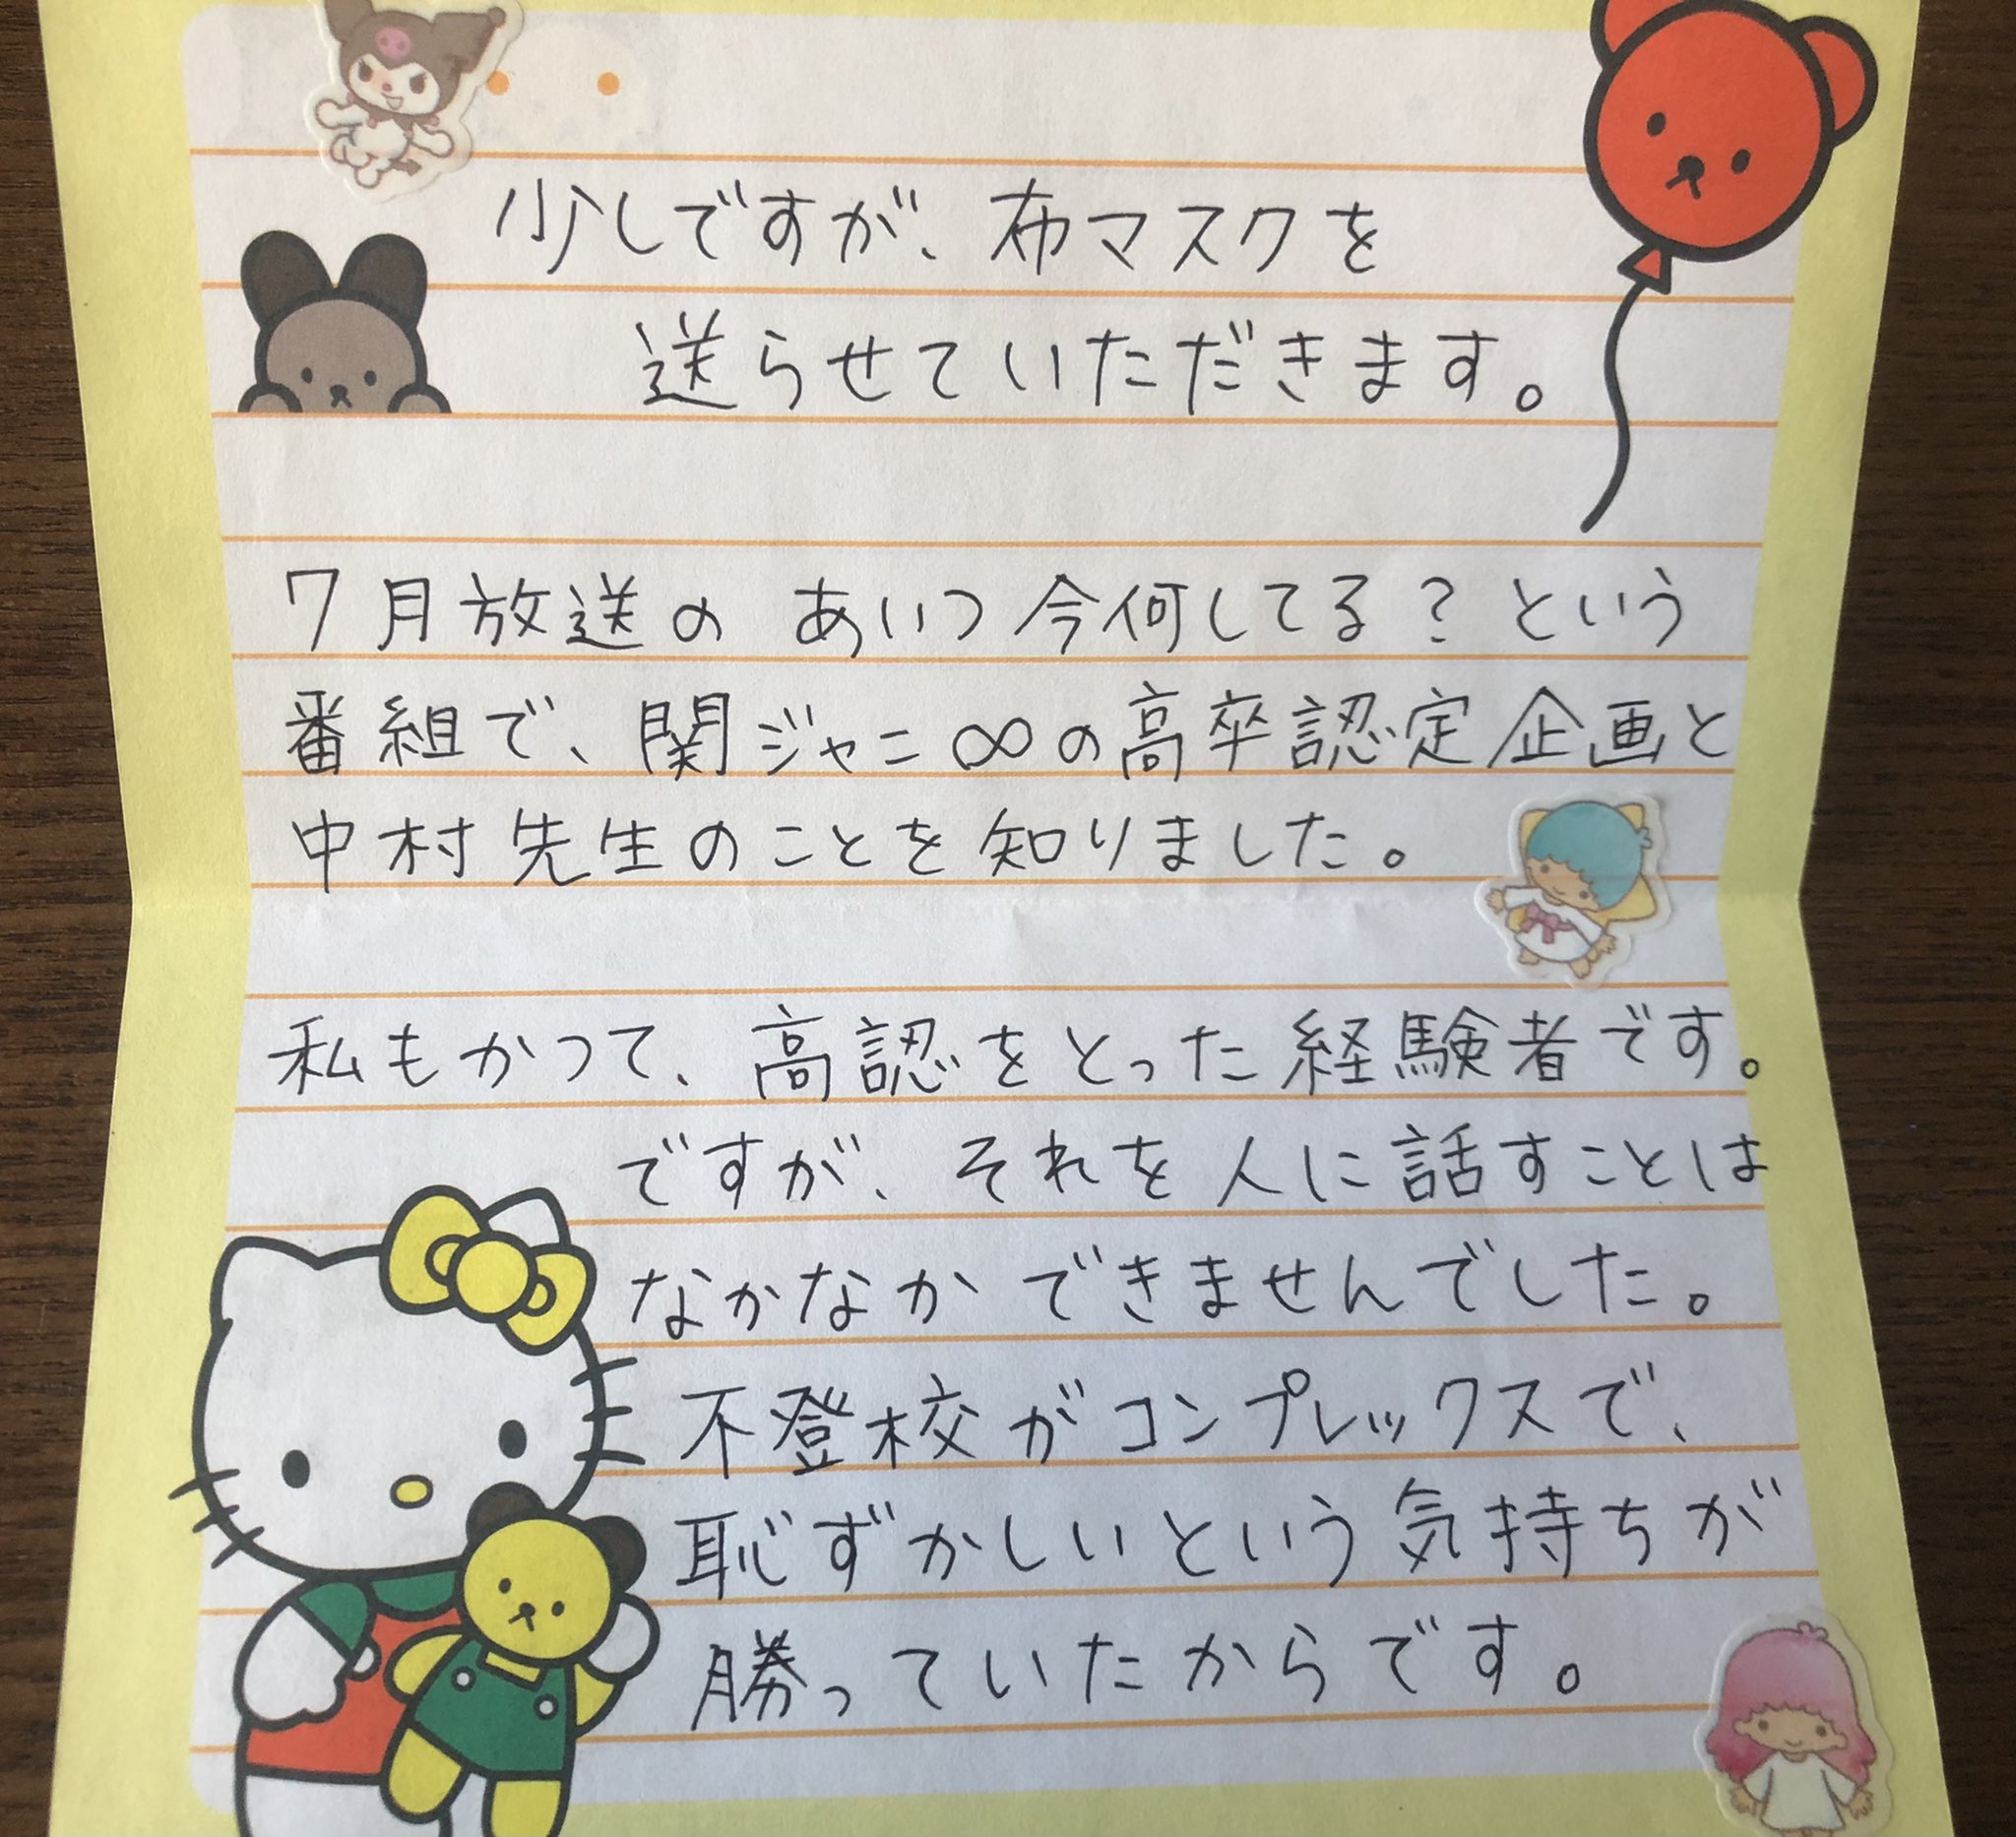 少しですが、布マスクを
送らせていただきます。
7月放送の あいつ今何してる？という
番組で、関ジャニ∞の高卒認定企画と
中村先生のことを知りました。
私もかつて、高認をとった経験者です。
ですが、それを人に話すことは
なかなかできませんでした。
不登校がコンプレックスで、
恥ずかしいという気持ちが
勝っていたからです。